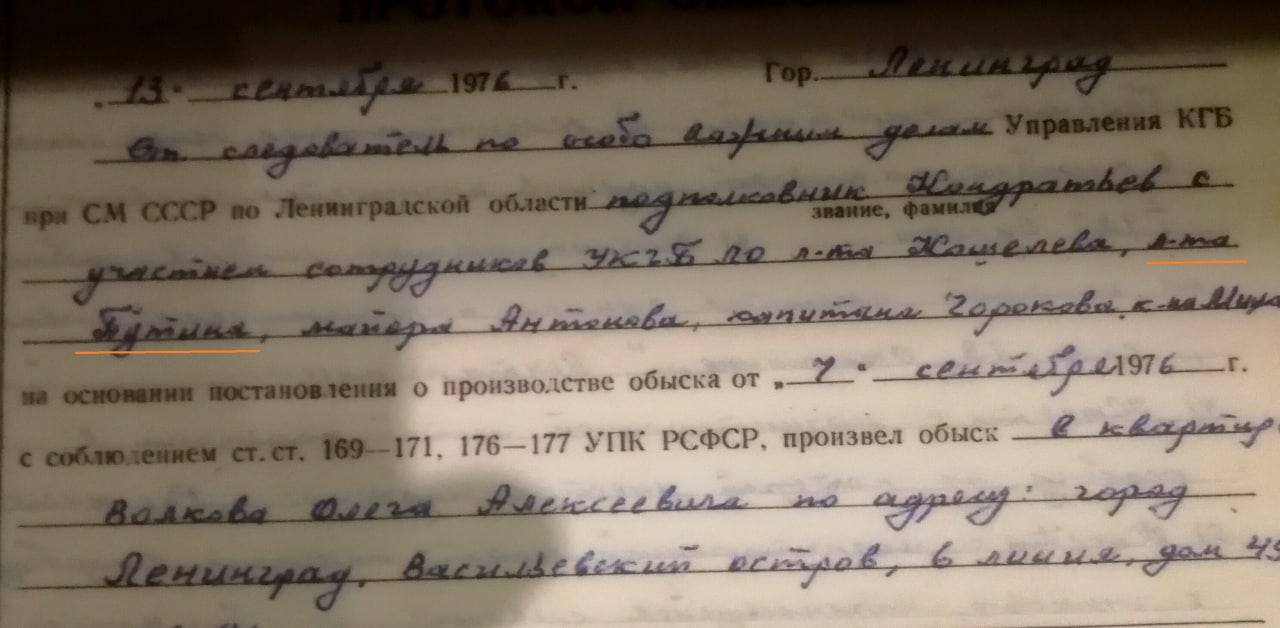 ПРОТОКОЛ ОБЫСКА
„13“ сентября 1976 г. Гор. Ленинград
Ст. следователь по особо важным делам Управления КГБ
при СМ СССР по Ленинградской области подполковник Кондратьев с
звание, фамилия
участием сотрудников УКГБ ЛО л-та Кошелева, л-та
Путина, майора Антонова, капитана Горокова, к-на
на основании постановления о производстве обыска от „7“ сентября 1976 г.
с соблюдением ст.ст. 169—171, 176—177 УПК РСФСР, произвел обыск в квартир
Волкова Олега Алексеевича по адресу: город
Ленинград, Васильевский остров, 6 линия, дом